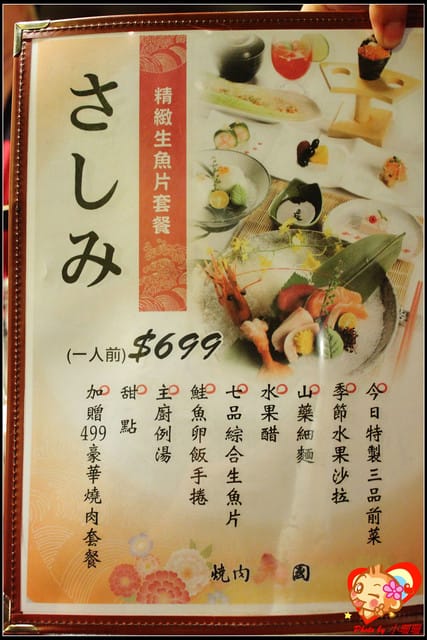 さしみ
精緻生魚片套餐
(一人前)$699
今日特製三品前菜
季節水果沙拉
山藥細麵
水果醋
七品綜合生魚片
鮭魚卵飯手捲
主廚例湯
甜點
加贈499豪華燒肉套餐
燒肉 園
Photo by 小